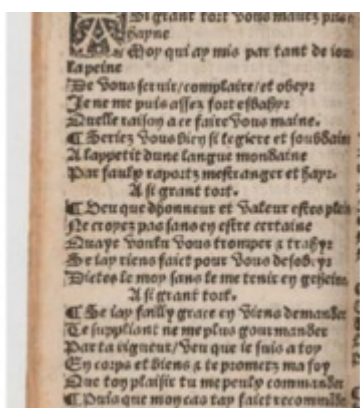 A Si grant tort vous mauez pris e
hayne
Moy qui ay mis par tant de iou
La peine
De vous seruir/complaire/et obeyr
Je ne me puis assez fort esbahyr
Quelle raison a ce faire vous maine.
¶ Seriez vous bien si legiere et soubdain
A lappetit dune langue mondaine
Par faulx raportz mestranger et hayr.
A si grant tort.
¶ Veu que dhonneur et valeur estes plei
Ne croyez pas sans en estre certaine
Quaye voulu vous tromper z trahyr
Se iay riens faict pour vous desobeyr
Dictes le moy sans le me tenir en geheine
A si grant tort.
¶ Se iay failly grace en viens demander
Te suppliant ne me plus gourmander
Par ta rigueur/veu que ie suis a toy
En corps et biens z te prometz ma foy
Que ton plaisir tu me peulx commander
¶ Puis que mon cas tay faict recommāde